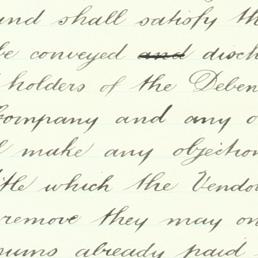 und shall satisfy th
be conveyed and disch
holders of the Deben
Company and any o
l make any objection
itle which the Vendo
remove they may on
nums already paid